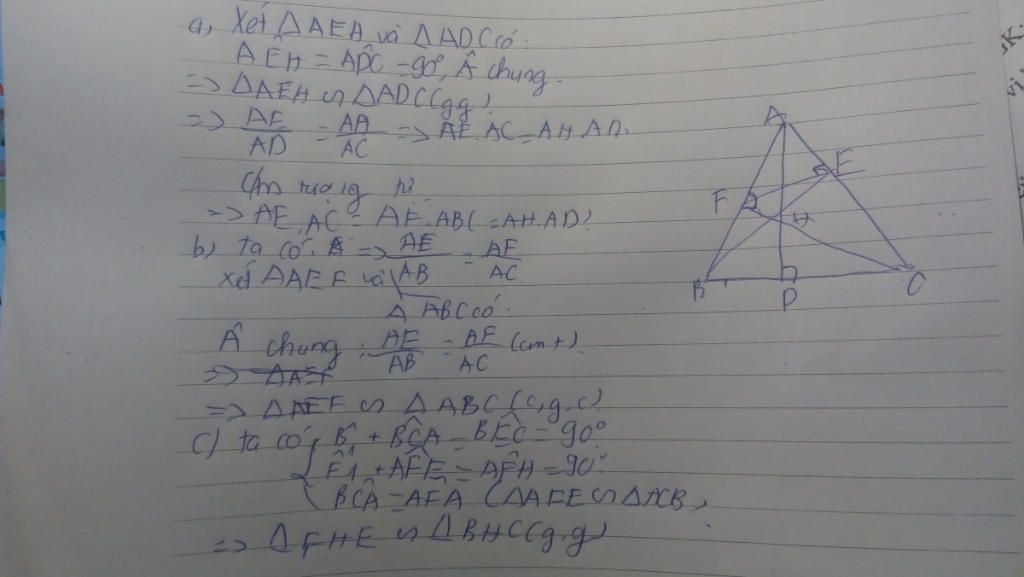 a, Xét ΔAEH và ΔADC có:
AÊH = AD̂C = 90°, Â chung.
=> ΔAEH ∽ ΔADC (gg)
=> AE/AD = AH/AC => AE.AC = AH.AD.
Cm tương tự
=> AE.AC = AF.AB (= AH.AD)
b) ta có: => AE/AB = AF/AC
xét ΔAEF và
ΔABC có:
 chung; AE/AB = AF/AC (cmt)
=> ΔAEF
=> ΔAEF ∽ ΔABC (c.g.c)
c) ta có { B̂1 + BĈA = BÊC = 90°
F̂1 + AF̂E = AF̂H = 90°
BĈA = AF̂A (ΔAFE ∽ ΔACB)
=> ΔFHE ∽ ΔBHC (g.g)
A
E
F
H
B
D
C